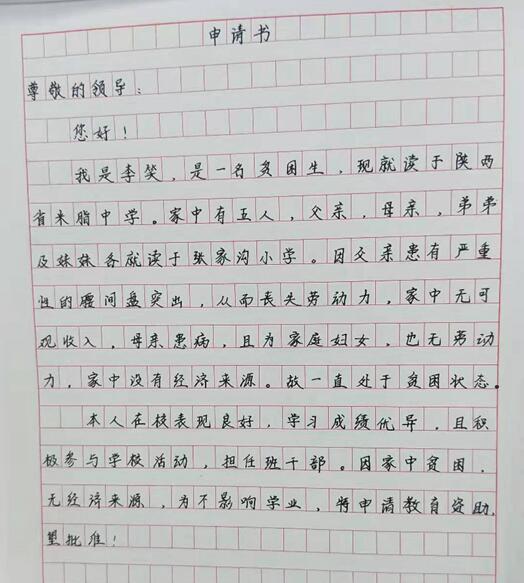 申请书
尊敬的领导：
您好！
我是李笑，是一名贫困生，现就读于陕西
省米脂中学。家中有五人，父亲，母亲，弟弟
及妹妹各就读于张家沟小学。因父亲患有严重
性的腰间盘突出，从而丧失劳动力，家中无可
观收入，母亲患病，且为家庭妇女，也无劳动
力，家中没有经济来源。故一直处于贫困状态。
本人在校表现良好，学习成绩优异，且积
极参与学校活动，担任班干部。因家中贫困，
无经济来源，为不影响学业，特申请教育资助，
望批准！